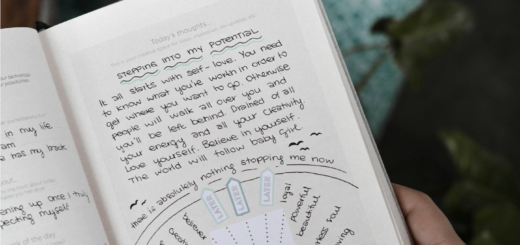 Today's thoughts...
STEPPING INTO MY POTENTIAL
It all starts with self-love. You need
to know what you're worth in order to
get where you want to go. Otherwise
people will walk all over you and
you'll be left behind. Drained of all
your energy and all your creativity.
Love yourself. Believe in yourself.
The world will follow baby girl.
there is absolutely nothing stopping me now
LATER
LATER
LATER
loyal
powerful
beautiful
believer
soul
in my life.
am
has my back
ening up once I truly
pecting myself